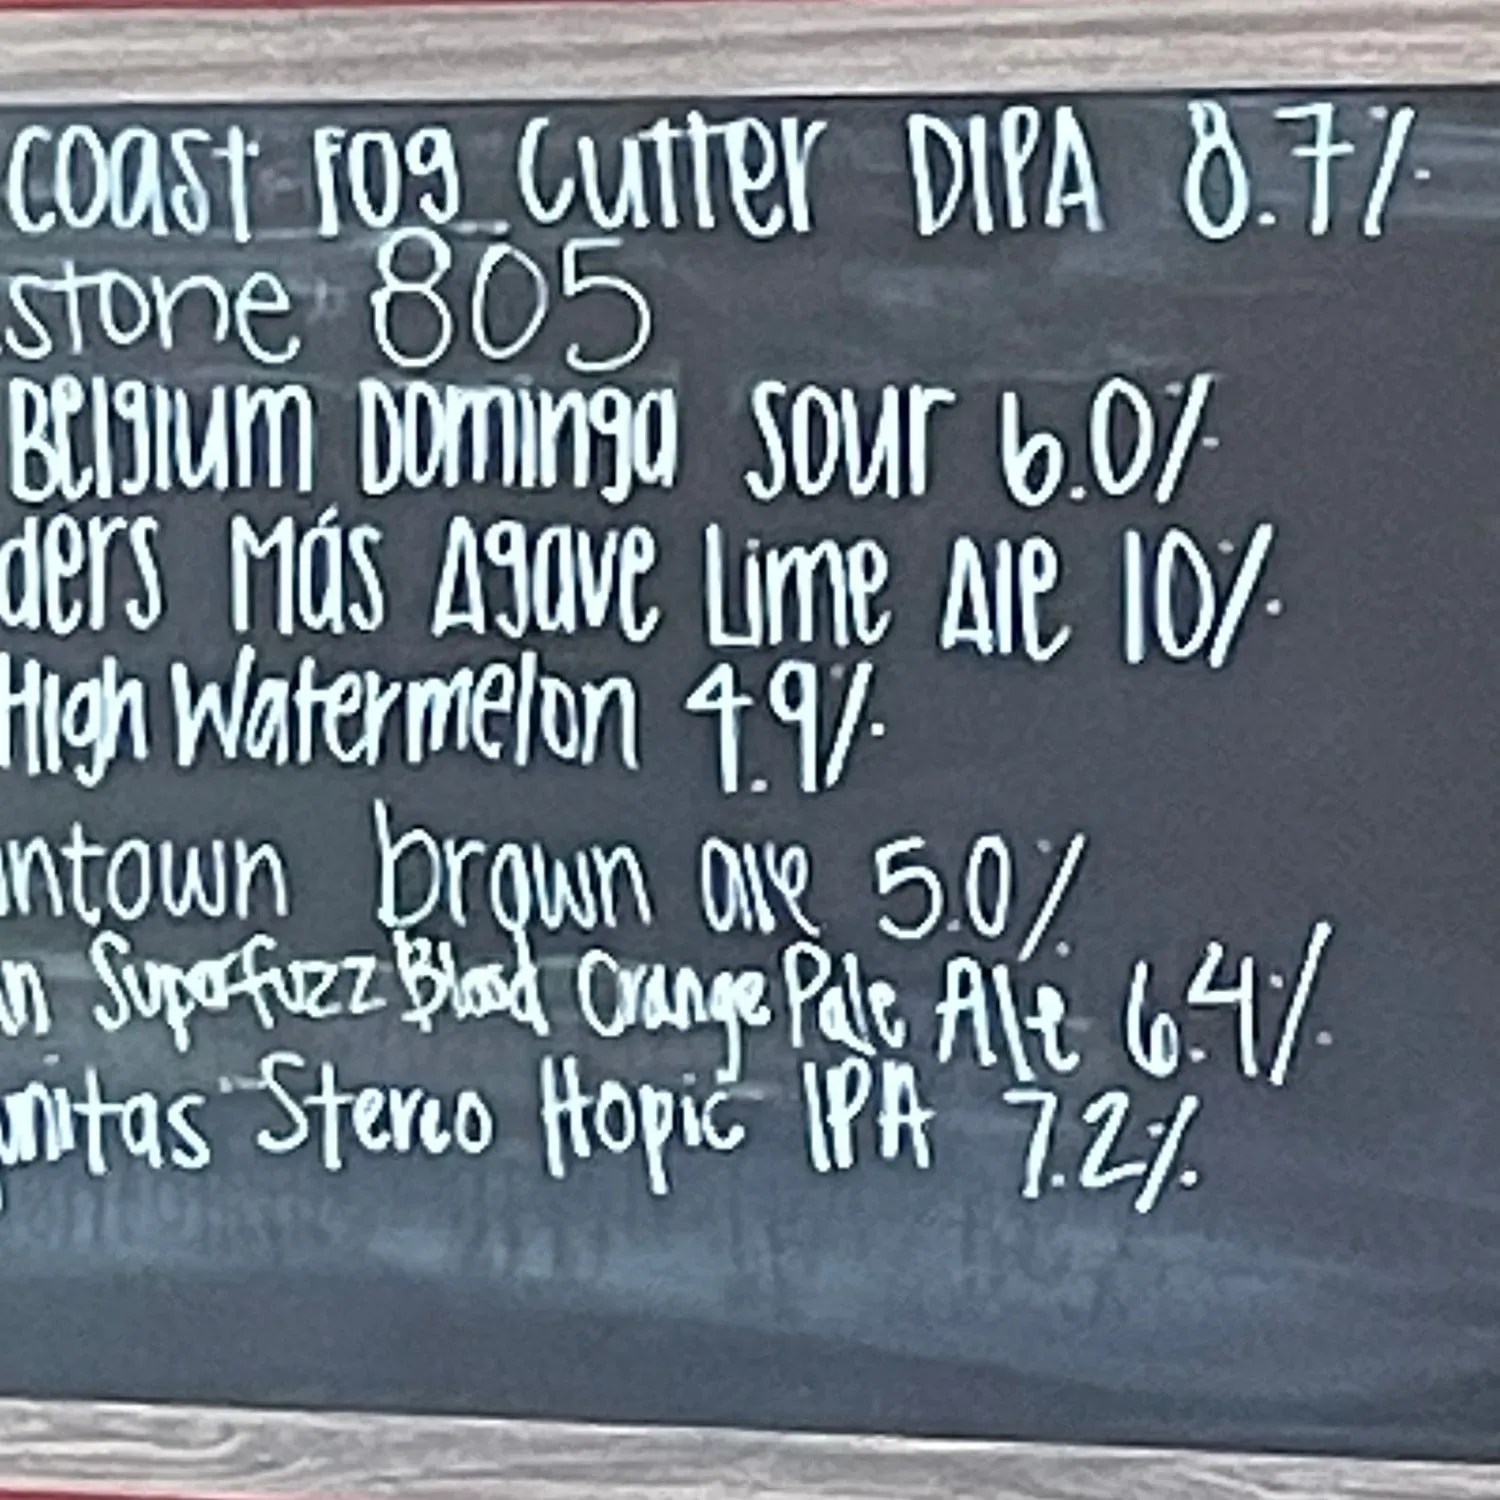 coast Fog Cutter DIPA 8.7%
stone 805
Belgium Dominga Sour 6.0%
ders Más Agave Lime Ale 10%
High Watermelon 4.9%
ntown brown ale 5.0%
n Superfuzz Blood Orange Pale Ale 6.4%
unitas Stereo Hopic IPA 7.2%